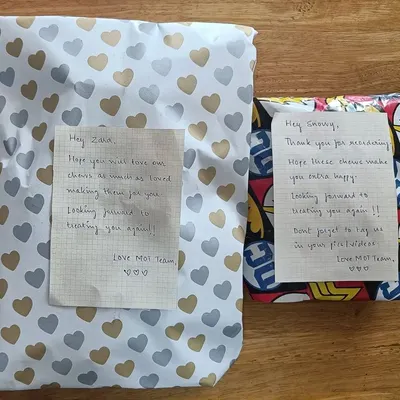 Hey Zara,
Hope you will love our
chews as much as loved
making them for you.
Looking forward to
treating you again!!
Love MOT Team,
Hey Snowy,
Thank you for reordering.
Hope these chews make
you extra happy.
Looking forward to
treating you again!!
Dont forget to tag us
in your pics/videos
Love MOT Team,